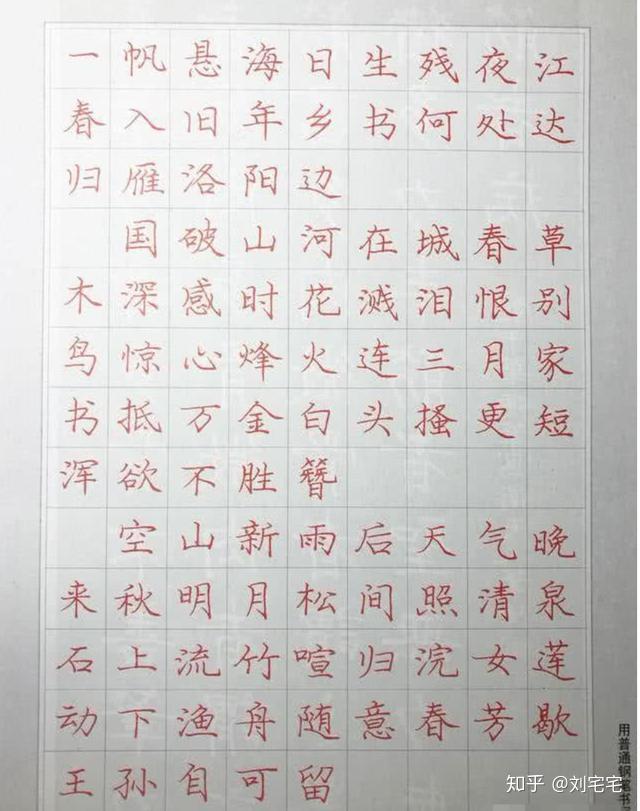 一帆悬海日生残夜江
春入旧年乡书何处达
归雁洛阳边
国破山河在城春草
木深感时花溅泪恨别
鸟惊心烽火连三月家
书抵万金白头搔更短
浑欲不胜簪
空山新雨后天气晚
来秋明月松间照清泉
石上流竹喧归浣女莲
动下渔舟随意春芳歇
王孙自可留
用普通钢笔书
知乎 @刘宅宅